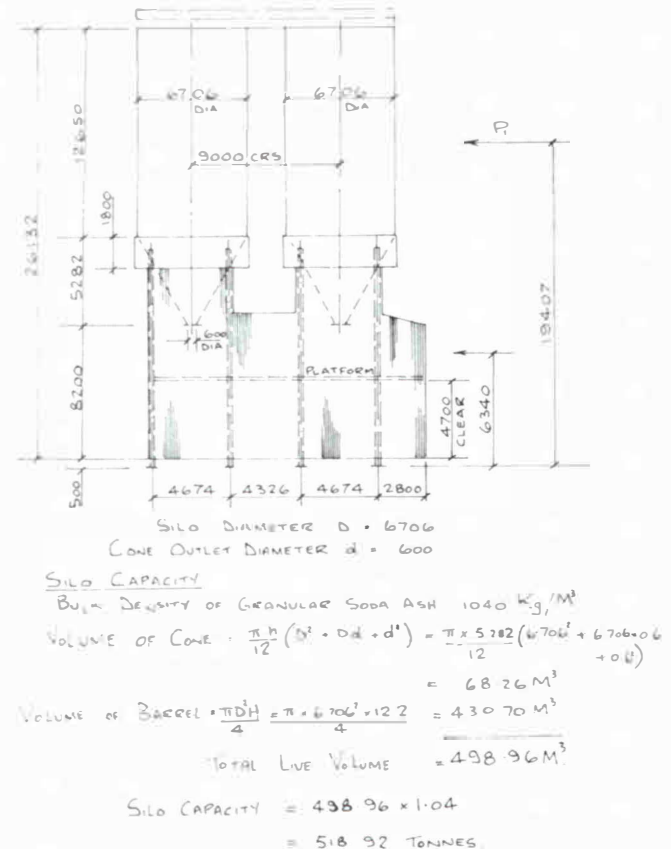 6706
DIA
6706
DIA
9000 CRS
P₁
12650
1800
26132
5282
8200
500
600
DIA
PLATFORM
4700
CLEAR
6340
19407
4674
4326
4674
2800
SILO DIAMETER D = 6706
CONE OUTLET DIAMETER d = 600
SILO CAPACITY
BULK DENSITY OF GRANULAR SODA ASH 1040 Kg/M³
VOLUME OF CONE = πh/12 (D² + Dd + d²) = π × 5.282/12 (6.706² + 6.706×0.6
+ 0.6²)
= 68.26 M³
VOLUME OF BARREL = πD²H/4 = π × 6.706² × 12.2/4 = 430.70 M³
TOTAL LIVE VOLUME = 498.96 M³
SILO CAPACITY = 498.96 × 1.04
= 518.92 TONNES